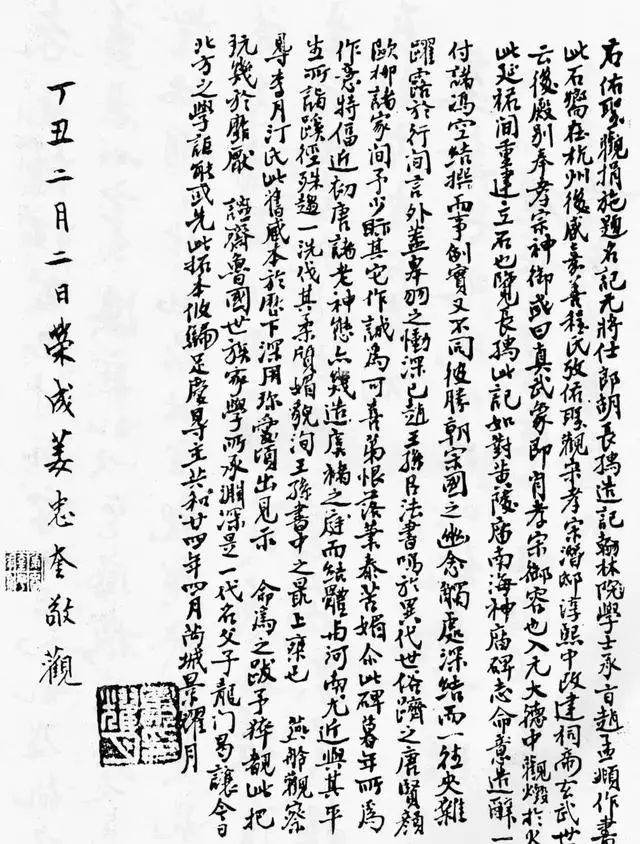 右佑聖觀捐施題名記元將仕郎胡長孺造記翰林院學士承旨趙孟頫作書
此石舊在杭州後感豪善穆氏攷佑聖觀宋孝宗潛邸淳熙中改建祠帝玄武世
云後殿別奉孝宗神御或曰真武象即肖孝宗御容也入元大德中觀燬於火
此延祐間重建立石也覽長孺此記如對黃陵廟南海神廟碑志命意造辭一
付諸馮空結撰而事例實又不同彼勝朝宗國之幽念觸處深結而一往史雜
躍露於行間言外蓋皋羽之慟深已趙王孫以法書鳴於異代世俗躋之唐賢顏
歐柳諸家間予少眎其它作誠為可喜第恨落葉泰苦媚似此碑暮年所為
作意特偪近初唐諸老神態亦幾造虞褚之庭而結體與河南尤近與其平
生所詣蹊徑殊趨一洗伐其柔質媚貌洵王孫書中之最上乘也 燕舲觀察
尊李月汀氏此舊咸本於歷下深用珍靈頃出見示 命為之跋予粹覩此把
玩幾於饜厭 謹齋魯國世族家學所承淵深是一代名父子龍門曷讓今日
北方之學詎耐或先此拓本攸歸足慶尋主共和廿四年四月芮城景耀月
丁丑二月二日榮成姜忠奎敬觀